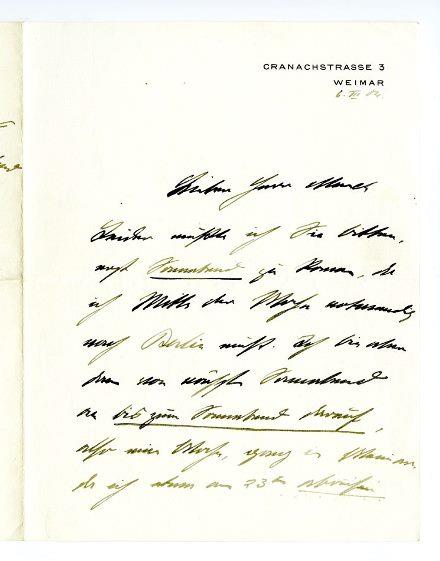 CRANACHSTRASSE 3
WEIMAR
6. VII 04.
Lieber Herr Munch
Leider möchte ich Sie bitten,
erst Sonnabend zu kommen, da
ich Mitte der Woche notwendig
nach Berlin muß. Ich bin aber
dann von nächsten Sonnabend
an bis zum Sonnabend darauf,
also eine Woche, ganz in Weimar,
da ich dann am 23ten abreise